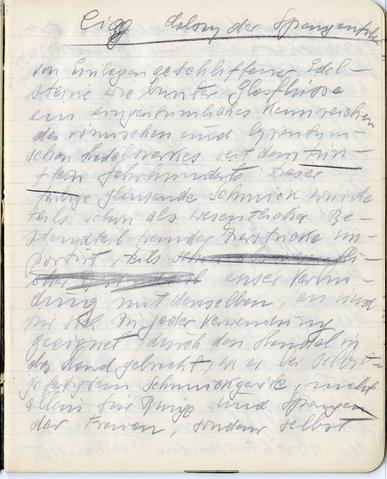 der Spangen
von Einlagen geschliffener Edel-
steine wie bunter Glasflüsse
ein eigentümliches Kennzeichen
des römischen und byzantini-
schen Metallwerkes seit dem fünf-
ten Jahrhundert. Dieser
farbig glänzende Schmuck wurde
teils schon als wesentlicher Be-
standteil fremder Zierstücke im-
portiert, teils
ausser Verbin-
dung mit denselben, an und
für sich zu jeder Verwendung
geeignet durch den Handel in
das Land gebracht, wo er bei selbst-
gefertigtem Schmuckgeräte, nicht
allein für Ringe und Spangen
der Frauen, sondern selbst